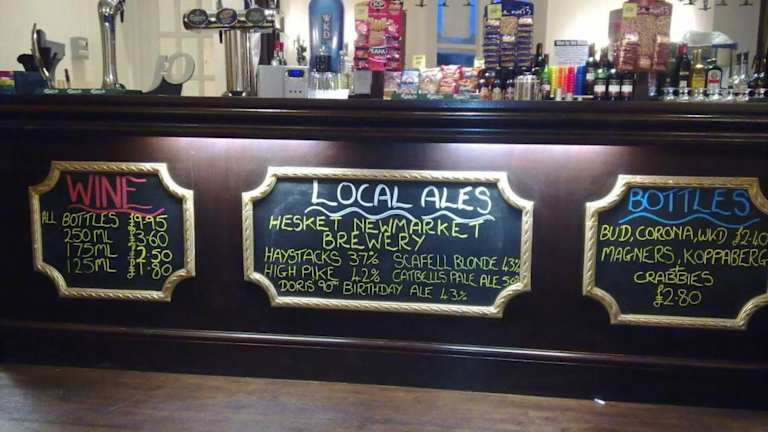 WKD
WINE
ALL BOTTLES £9.95
250ML £3.60
175ML £2.50
125ML £1.80
LOCAL ALES
HESKET NEWMARKET
BREWERY
HAYSTACKS 3.7% SCAFELL BLONDE 4.3%
HIGH PIKE 4.2% CATBELLS PALE ALE 5.0%
DORIS 90TH BIRTHDAY ALE 4.3%
BOTTLES
BUD, CORONA, WKD £2.40
MAGNERS, KOPPABERG
+
CRABBIES
£2.80